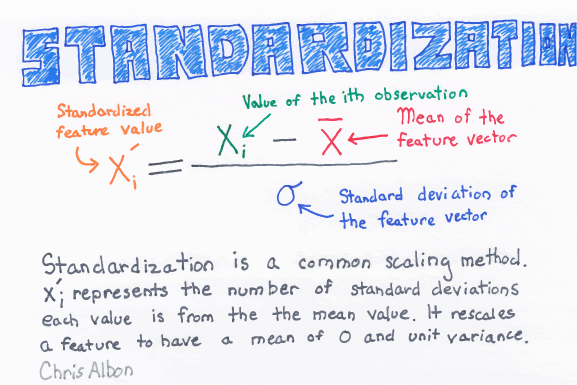 STANDARDIZATION
Value of the ith observation
Standardized
feature value
Mean of the
feature vector
Xi′ = (Xi − X̄) / σ
Standard deviation of
the feature vector
Standardization is a common scaling method.
Xi′ represents the number of standard deviations
each value is from the the mean value. It rescales
a feature to have a mean of 0 and unit variance.
Chris Albon